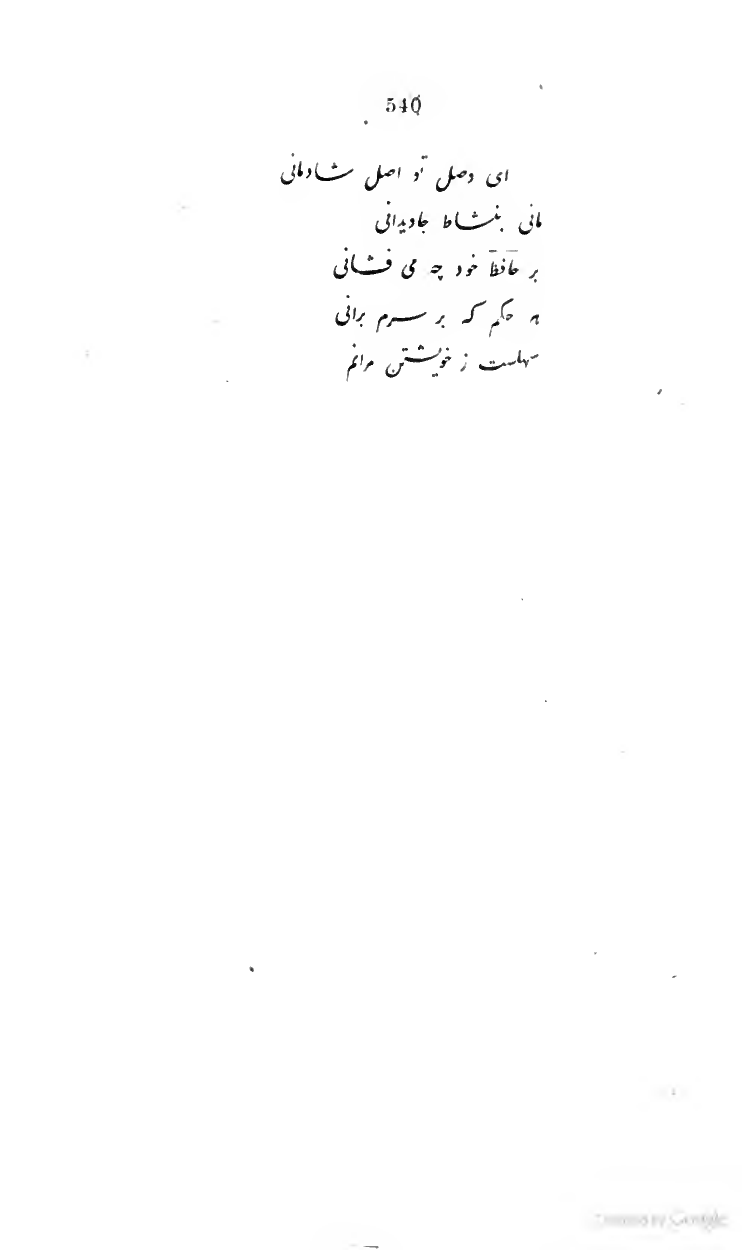 540
ای وصل تو اصل شادمانی
مانی بنشاط جاویدانی
بر حافظ خود چه می فشانی
هر حکم که بر سرم برانی
سهلست ز خویشتن مرانم
Google